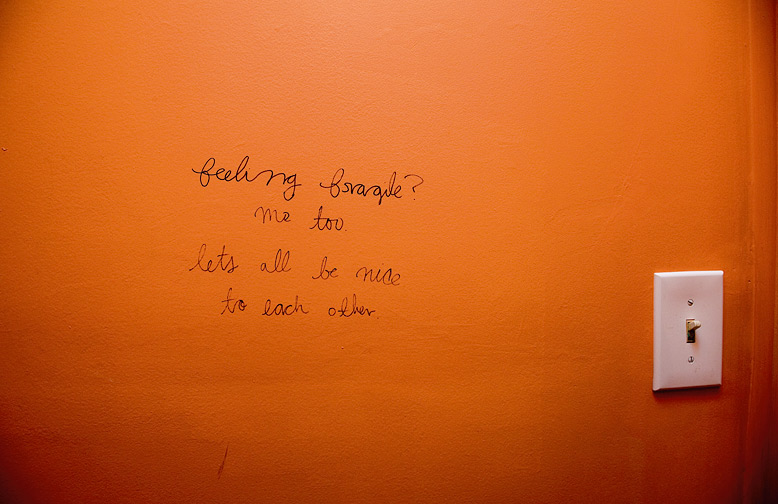 feeling fragile?
me too.
lets all be nice
to each other.